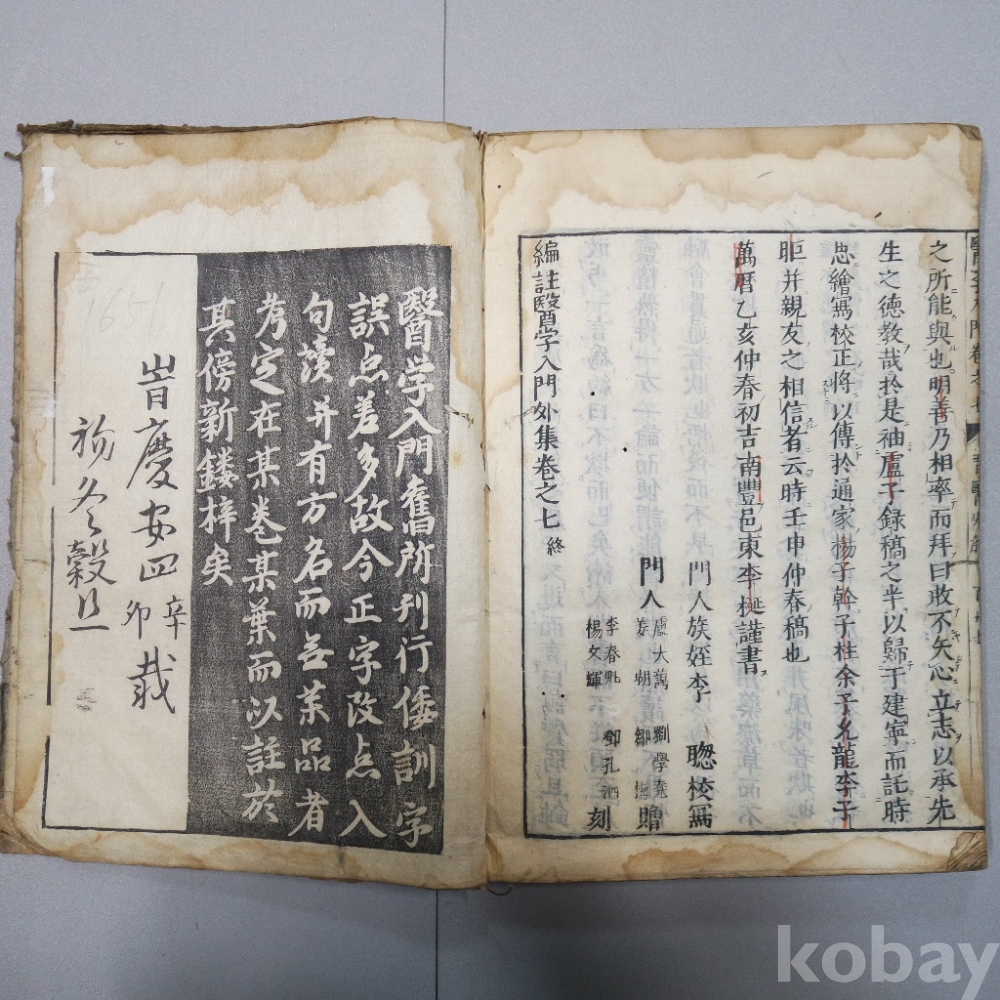 之所能與也明普乃相率而拜曰敢不矢心立志以承先
生之德教哉於是袖盧子錄稿之半以歸于建寧而託時
忠繪寫校正將以傳於通家楊子幹子柱余子允龍李子
昛并親友之相信者云時壬申仲春稿也
萬曆乙亥仲春初吉南豐邑東李梴謹書
門人族姪李聰校寫
門人盧大萬 劉學堯 姜朝 鄒 贈
李春魁 楊文輝 鄧孔洒 刻
編註醫学入門外集卷之七 終
醫学入門舊所刊行倭訓字
誤点差多故今正字改点入
句讀并有方名而无茱品者
考定在某卷某葉而以註於
其傍新鏤梓矣
旹慶安四辛卯載
初冬穀旦
1651
kobay